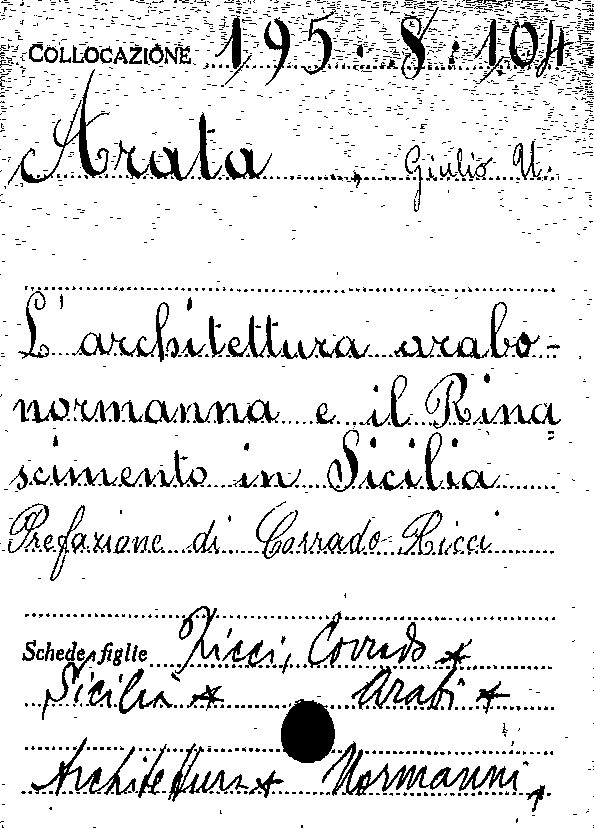 COLLOCAZIONE 195.8.104
Arata, Giulio U.
L'architettura arabo-
normanna e il Rina=
scimento in Sicilia
Prefazione di Corrado Ricci
Schede figlie Ricci, Corrado *
Sicilia * Arabi *
Architettura * Normanni *